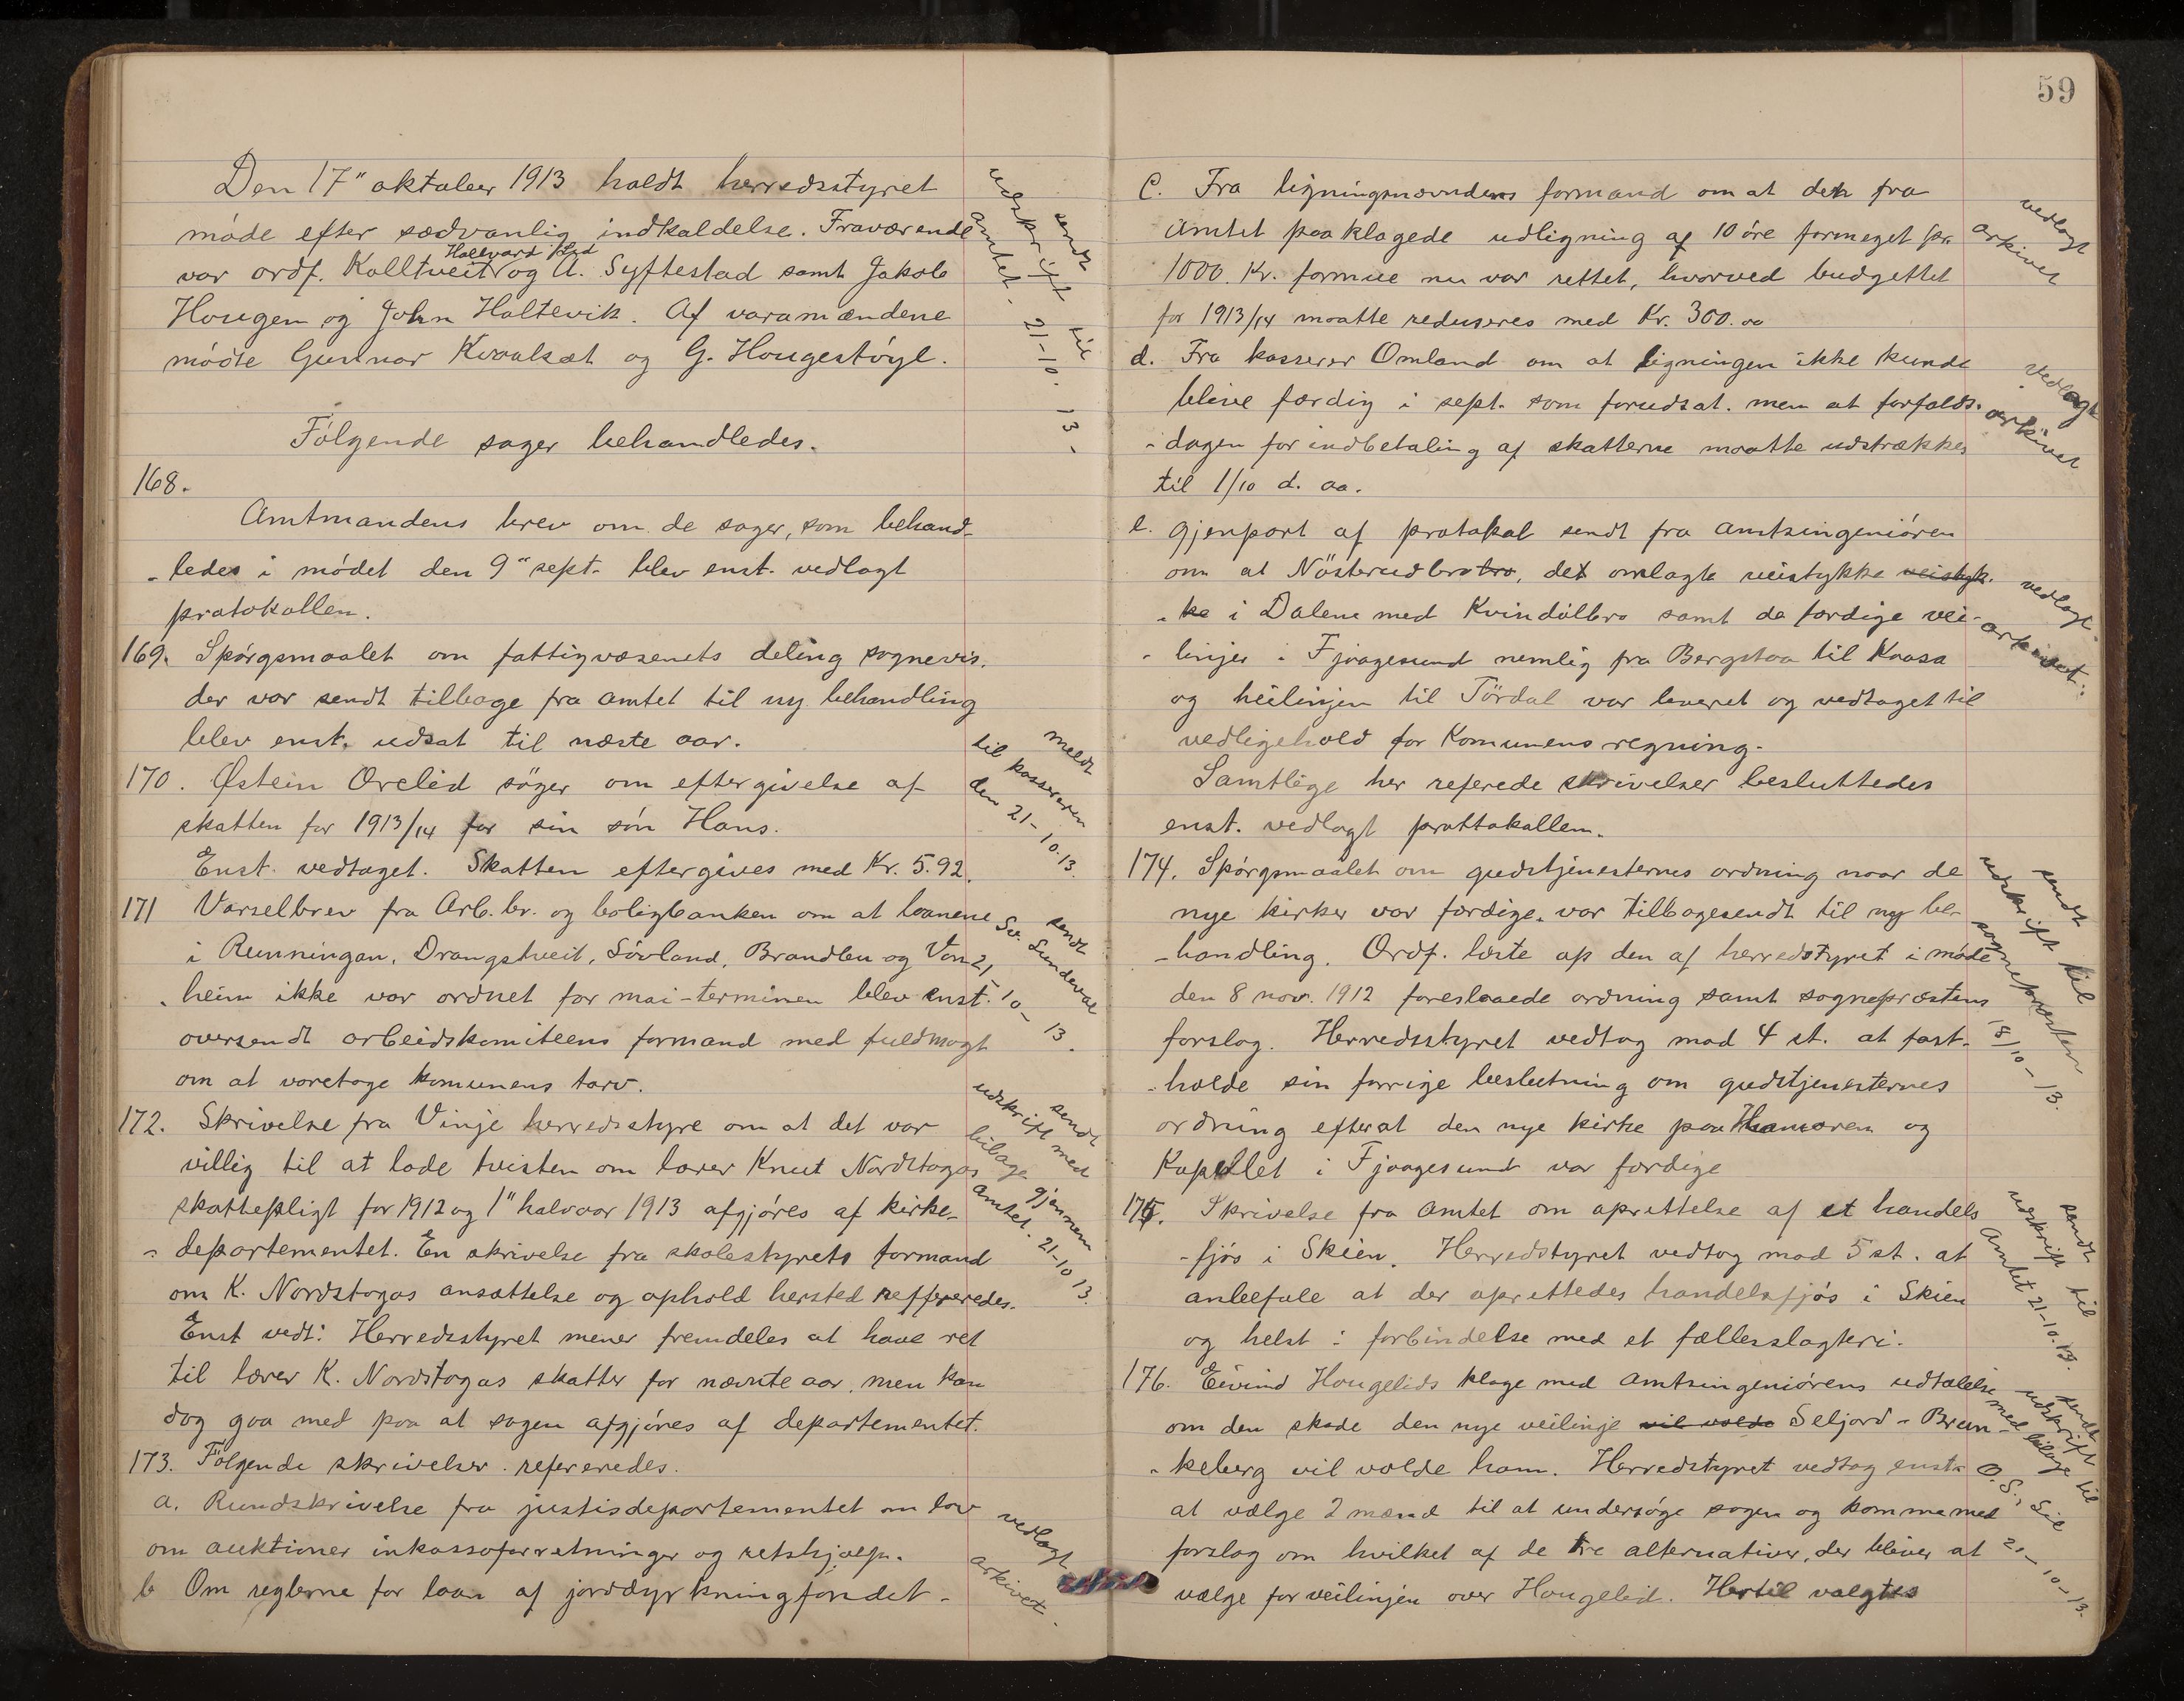 Den 17" oktober 1913 holdt herredsstyret
møde efter sædvanlig indkaldelse. Fraværende
Hallvard Lid
var ordf. Kolltveit og A. Syftestad samt Jakob
Hougen og John Haltevik. Af varamændene
mødte Gunnar Kvaalsæt og G. Hougestøyl.
sendt
udskrift til
amtet.
21-10. 13-
Følgende sager behandledes.
168.
Amtmandens brev om de sager, som behand-
-ledes i mødet den 9" sept. blev enst. vedlagt
protokollen.
169. Spørgsmaalet om fattigvæsenets deling sognevis.
der var sendt tilbage fra amtet til ny behandling
blev enst. udsat til næste aar.
170. Østein Ørelid søger om eftergivelse af
skatten for 1913/14 for sin søn Hans.
Enst. vedtaget. Skatten eftergives med Kr. 5.92.
meldt
til kassereren
den 21-10.13.
171 Varselbrev fra Arb.br. og boligbanken om at laanene
i Runningan, Drangstveit, Løvland, Brandlen og Van-
-heim ikke var ordnet for mai-terminen blev enst.
oversendt arbeidskomiteens formand med fuldmagt
om at varetage komunens tarv.
sendt
Sv. Sundevae
21
10- 13.
172. Skrivelse fra Vinje herredsstyre om at det var
villig til at lade tvisten om lærer Knut Nordstogas
skattepligt for 1912 og 1" halvaar 1913 afgjøres af kirke-
-departementet. En skrivelse fra skolestyrets formand
om K. Nordstogas ansættelse og ophold hersted reffereredes.
Enst vedt: Herredsstyret mener fremdeles at have ret
til lærer K. Nordstogas skatter for nævnte aar, men kan
dog gaa med paa at sagen afgjøres af departementet.
sendt
udskrift med
bilage gjennem
amtet. 21-10 13.
173. Følgende skrivelser refereredes.
a. Rundskrivelse fra justisdepartementet om lov
om auktioner inkassoforretninger og retshjælp.
b Om reglerne for laan af jorddyrkningfondet-
vedlagt
arkivet.
59
C. Fra ligningsnævndens formand om at den fra
amtet paaklagede udligning af 10 øre formeget pr.
1000. Kr. formue nu var rettet, hvorved budgettet
for 1913/14 maatte reduseres med Kr. 300.00
vedlagt
arkivet
d. Fra kasserer Omland om at ligningen ikke kunde
blive færdig i sept. som forudsat. men at forfalds-
-dagen for indbetaling af skatterne maatte udstrækkes
til 1/10 d. aa.
vedlagt
arkivet
e. gjenpart af protokol sendt fra amtsingeniøren
om at Nösterudbro tro, det omlagte veistykke veistyk-
-ke i Dalene med Kvindølbro samt de færdige vei-
-linjer i Fjaagesund nemlig fra Bergstaa til Kaasa
og heilinjen til Tördal var leveret og vedtaget til
vedligehold for Komunens regning.
vedlagt
arkivet.
Samtlige her referede skrivelser besluttedes
enst. vedlagt prottokallen.
174. Spørgsmaalet om gudstjenesternes ordning naar de
nye kirker var færdige. var tilbagesendt til ny be-
-handling. Ordf. læste op den af herredstyret i møde
den 8 nov. 1912 foreslaaede ordning samt sogneprestens
forslag. Herredsstyret vedtog mod 4 st. at fast-
-holde sin forrige beslutning om gudstjenesternes
ordning efterat den nye kirke paa Hamaren og
Kapellet i Fjaagesund var færdige
sendt
udskrift til
sognepræsten
18/10-13.
175. Skrivelse fra amtet om oprettelse af et handels
-fjøs i Skien. Herredstyret vedtog mod 5 st. at
anbefale at der oprettedes handelsfjøs i Skien
og helst i forbindelse med et fællesslagteri.
sendt
udskrift til
Amtet 21-10.13.
176. Eivind Hougelids klage med amtsingeniørens udtalelse
om den skade den nye veilinje vil volde Seljord - Brun-
-keberg vil volde ham. Herredstyret vedtog enst.
at vælge 2 mænd til at undersøge sagen og komme med
forslag om hvilket af de tre alternativer, der bliver at
vælge for veilinjen over Hougelid. Hertil valgtes
sendt
udskrift til
med bilage
O. S. Lid
21-10-13.